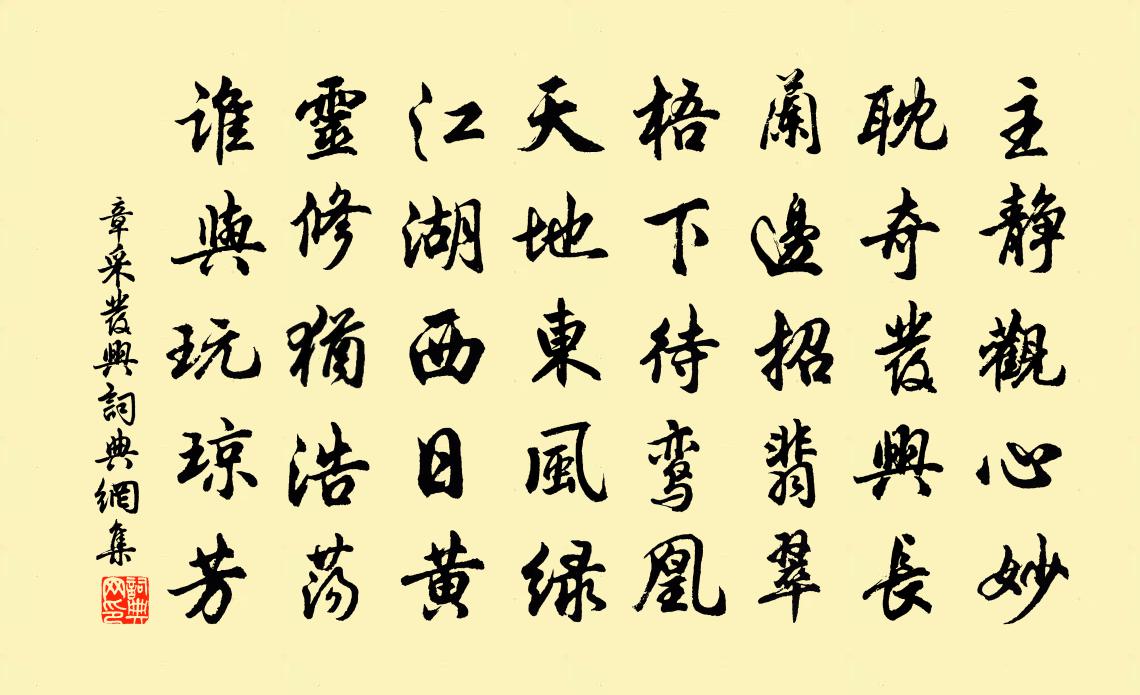 主靜觀心妙
耽奇發興長
蘭邊招翡翠
梧下待鸾凰
天地東風绿
江湖西日黄
靈修猶浩荡
谁與玩琼芳
章采發興詞典網集
詞典网印